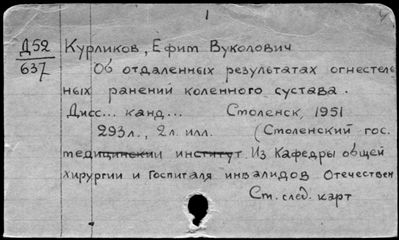 1
Д52
637
Курликов, Ефим Вуколович
Об отдаленных результатах огнестель
ных ранений коленного сустава.
Дисс... канд... Смоленск, 1951
293л., 2л. илл. (Смоленский гос.
медицинский институт. Из Кафедры общей
хирургии и Госпиталя инвалидов Отечествен
См. след. карт